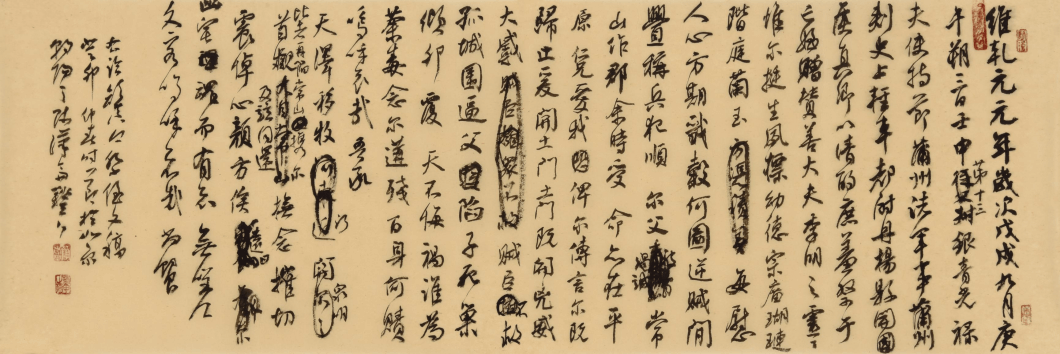 維乾元元年歲次戊戌九月庚
午朔三日壬申第十三叔銀青光祿
夫使持節蒲州諸軍事蒲州
刺史上輕車都尉丹楊縣開國
侯真卿以清酌庶羞祭于
亡姪贈贊善大夫季明之靈曰
惟爾挺生夙標幼德宗廟瑚璉
階庭蘭玉每慰
人心方期戩穀何圖逆賊閒
釁稱兵犯順爾父竭誠常
山作郡余時受命亦在平
原仁兄愛我俾爾傳言爾既
歸止爰開土門土門既開凶威
大蹙賊臣不救
孤城圍逼父陷子死巢
傾卵覆天不悔禍誰為
荼毒念爾遘殘百身何贖
嗚呼哀哉吾承
天澤移牧河關泉明
比者再陷常山攜爾
首櫬及茲同還撫念摧切
震悼心顏方俟遠日
幽宅魂而有知無嗟
久客嗚呼哀哉尚饗
右臨顏真卿祭侄文稿
癸卯仲春時節於北京